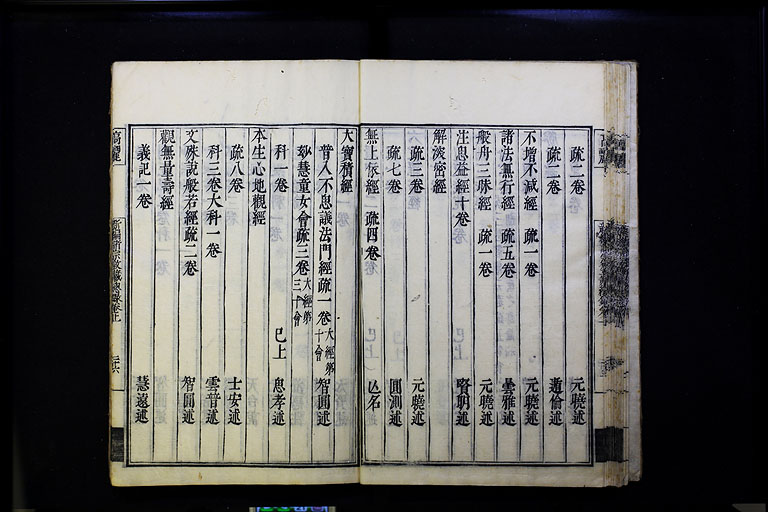 疏二卷 元曉述
疏二卷 道倫述
不增不減經 疏一卷 元曉述
諸法無行經 疏五卷 曇雅述
般舟三昧經 疏一卷 元曉述
注思益經十卷 賢明述
解深密經
疏三卷 元曉述
疏七卷 圓測述
無上依經 疏四卷 亾名
大寶積經
普入不思議法門經疏一卷 大經第十會 智圓述
妙慧童女會疏三卷 大經第三十會
科一卷 已上 思孝述
本生心地觀經
疏八卷 士安述
科三卷大科一卷 雲普述
文殊說般若經疏二卷 智圓述
觀無量壽經
義記一卷 慧遠述
高麗 新編諸宗教藏總錄卷上 三十六